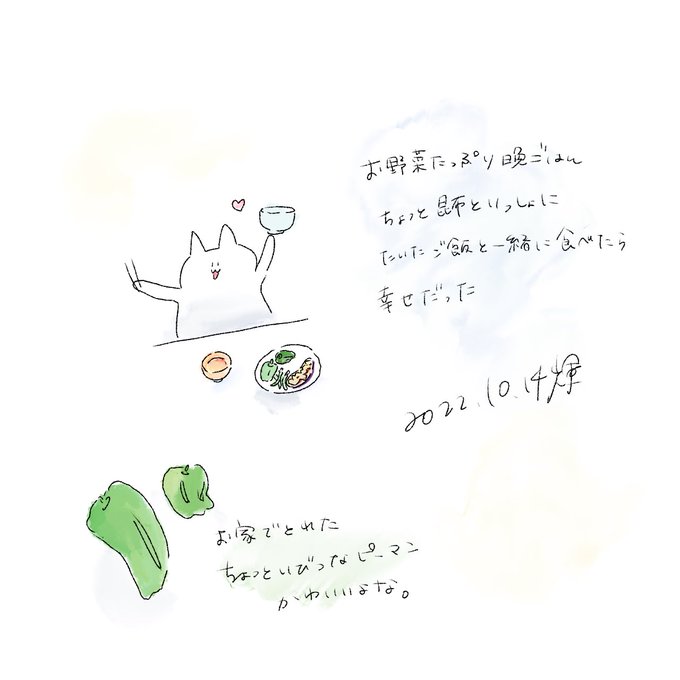 お野菜たっぷり晩ごはん
ちょっと昆布といっしょに
たいたご飯と一緒に食べたら
幸せだった
2022.10.14輝
お家でとれた
ちょっといびつなピーマン
かわいいよな。